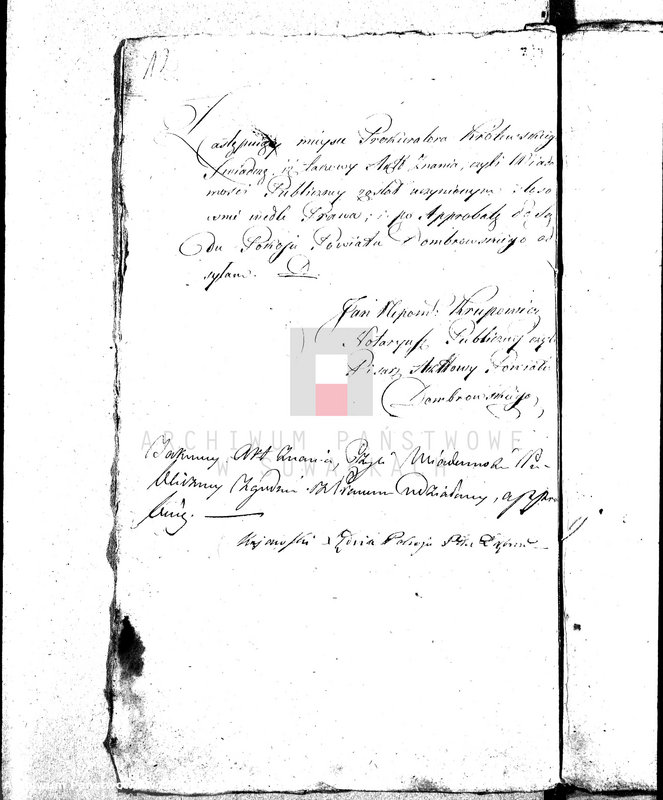 Zastępuiący mieysce Prokuratora Królewskiego
Świadczę, iż takowy Akt Znania, czyli Wiado-
mości Publiczney został uczynionym stoso-
wnie wedle Prawa; i po Approbatę do Są-
du Pokoju Powiatu Dombrowskiego od
syłam.
Jan Nepom: Krupowicz
Notaryusz Publiczny czyli
Pisarz Aktowy Powiatu
Dombrowskiego
ARCHIWUM PAŃSTWOWE
W SUWAŁKACH
Takowy Akt Znania Czyli Wiadomości Pu-
bliczney Zgodnie z Prawem udziałany, appro-
buię.
Sędzia Pokoju